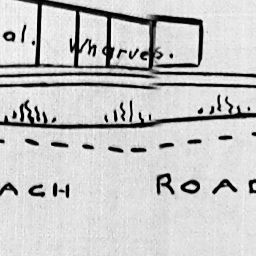 al. Wharves.
ACH ROAD